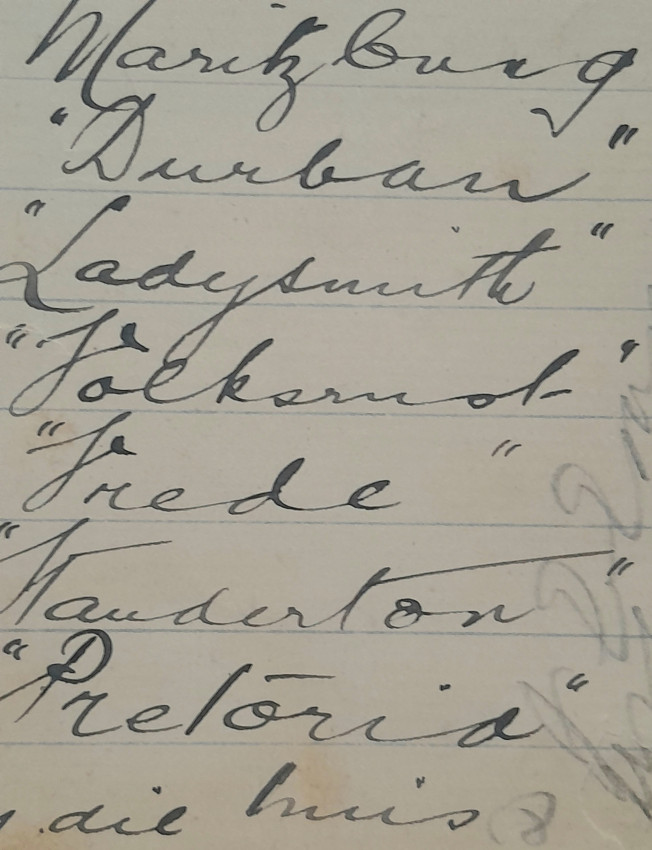 Maritzburg
"Durban"
"Ladysmith"
"Volksrust"
"Vrede"
"Standerton"
"Pretoria"
die huis